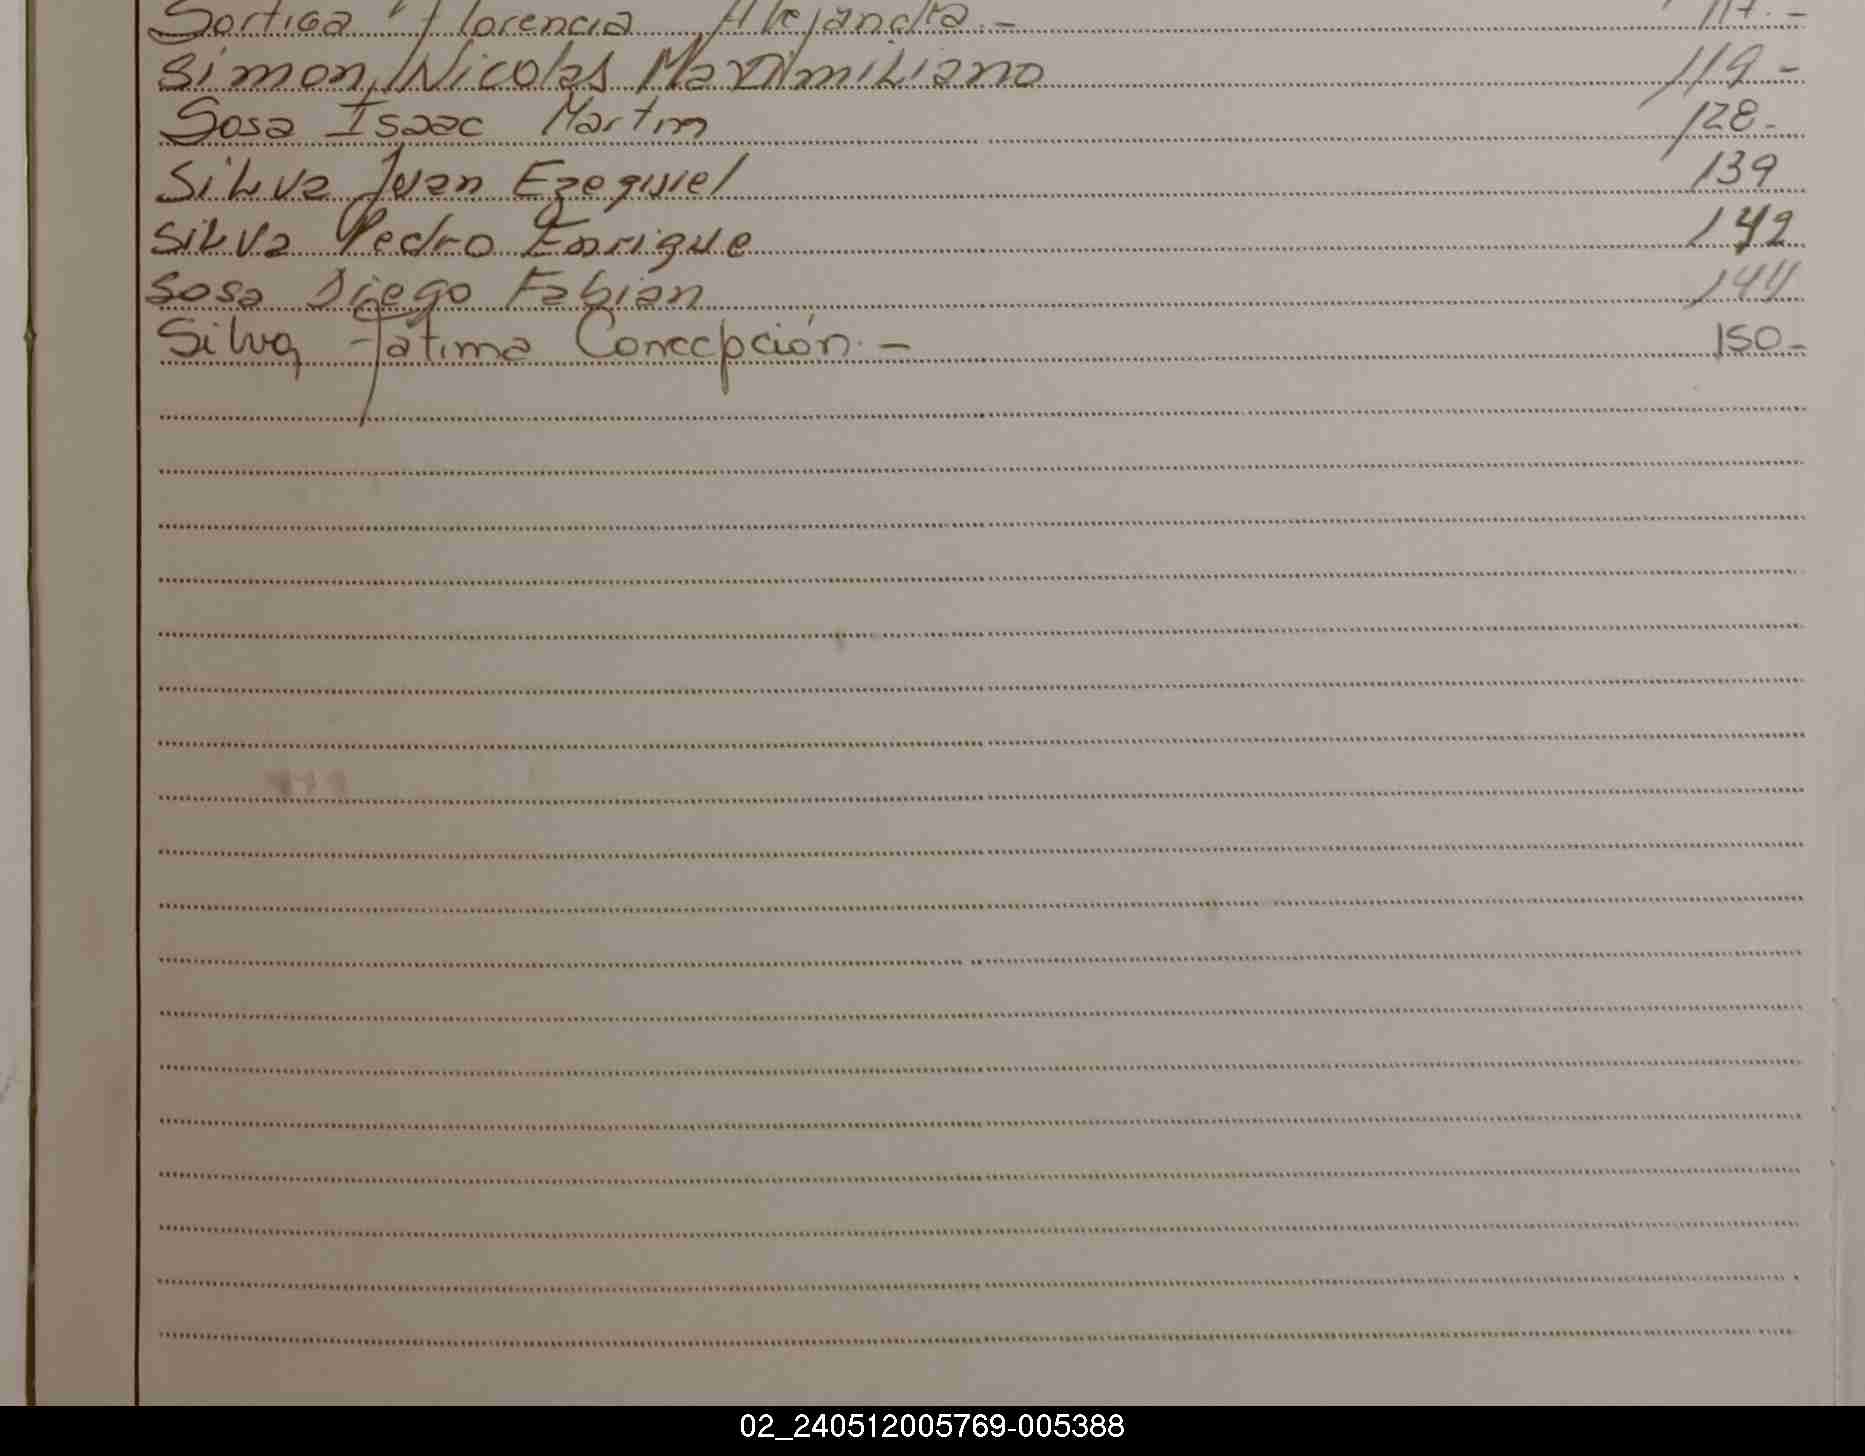 Sortica Florencia Alejandra.- 117.-
Simon, Nicolas Maximiliano 119-
Sosa Isaac Martin 128-
Silva Juan Ezequiel 139
Silva Pedro Enrique 142
Sosa Diego Fabian 144
Silva, Fatima Concepción.- 150-
02_240512005769-005388